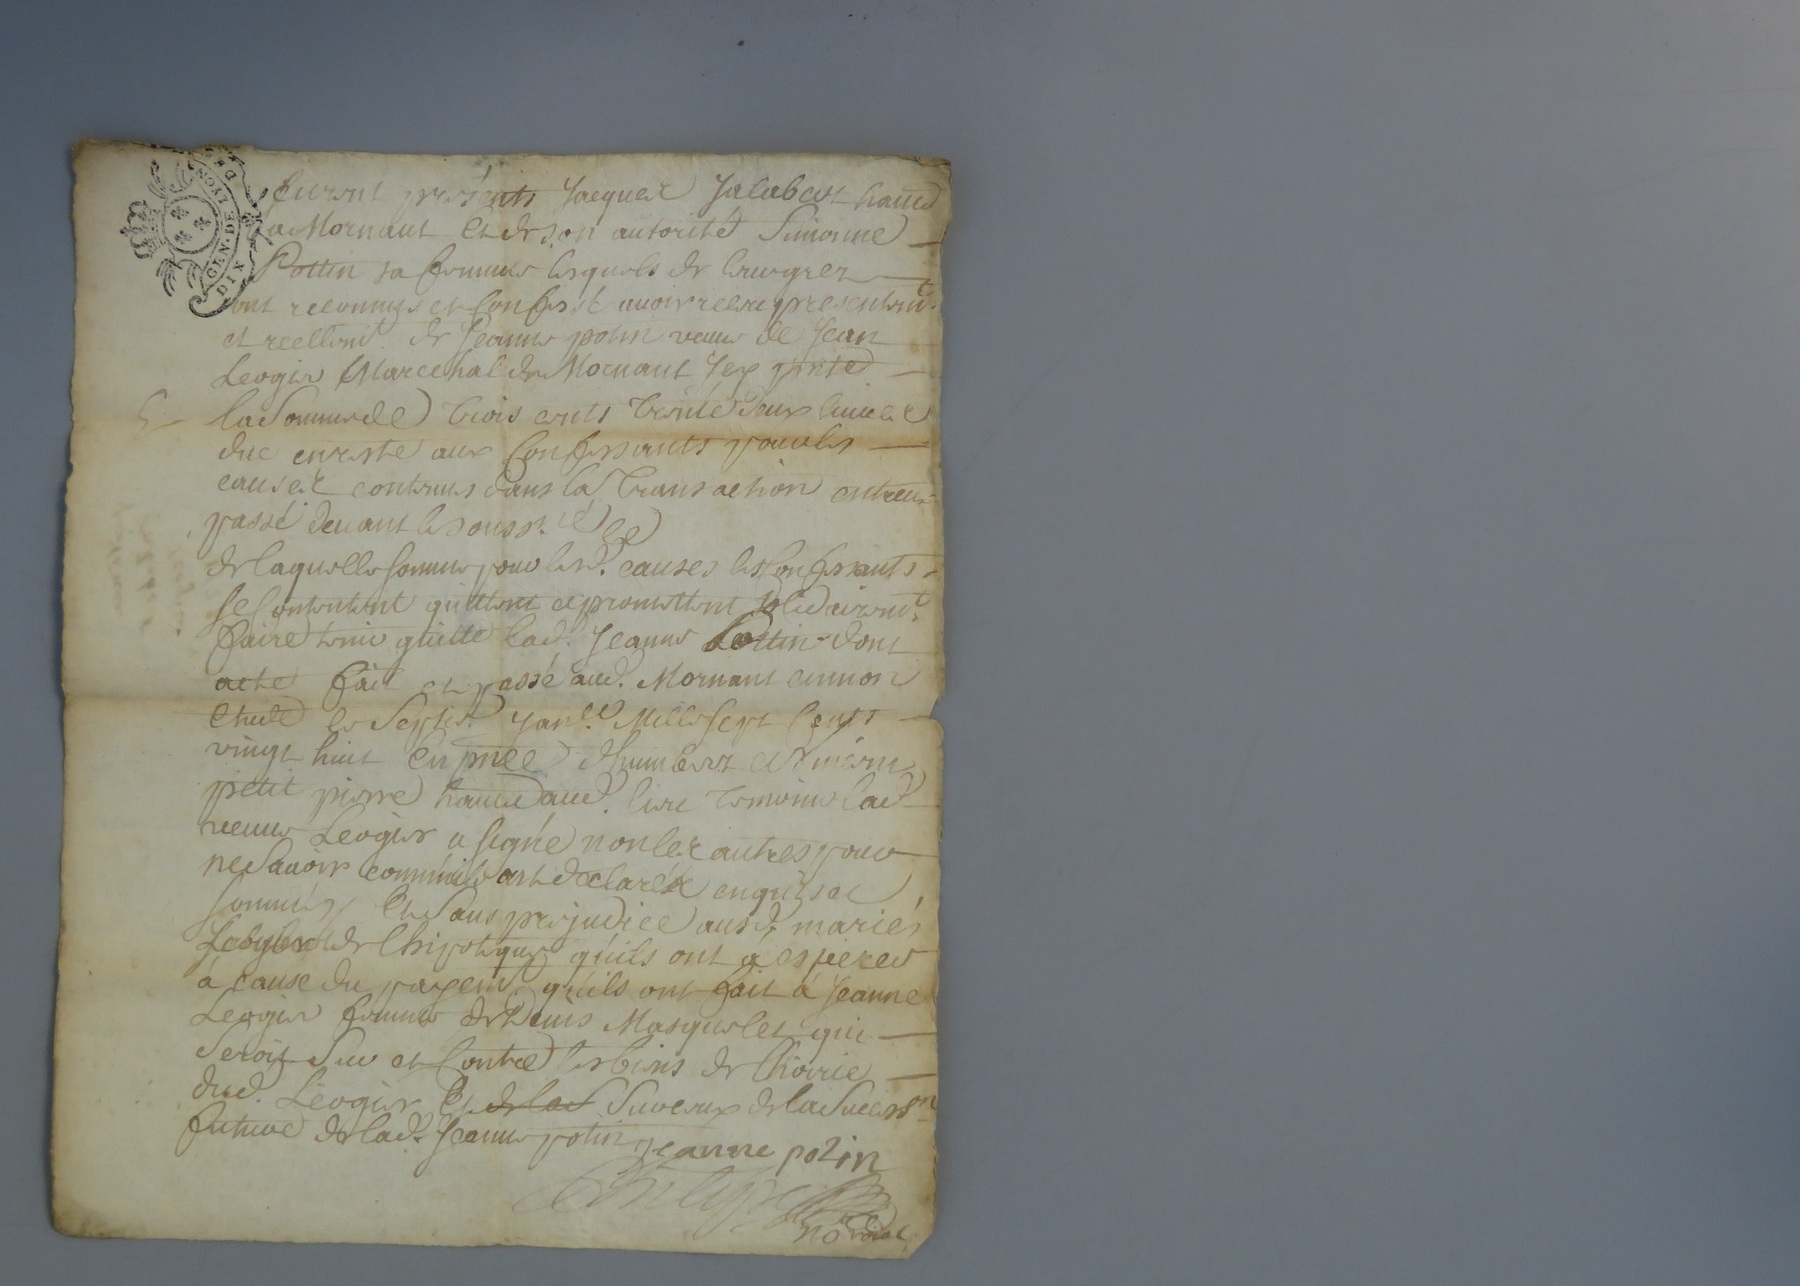 GEN. DE LYON
DIX
furent présents Jacques Jalabert habit
a Mornant et de son autorité Simonne
Pottin sa femme lesquels de leur gréz
ont reconnus et confessé avoir receu presentemt.
et reellemt. de Jeanne potin veuve de Jean
Leogier Marechal de Mornant icy pnte
la somme de trois cents trente deux livres
due en reste aux confessants pour les
causes contenus dans la transaction entreux
passé devant le soussné
de laquelle somme pour lesd. causes les confessants
se contentent quittent et promettent solidairemt.
faire tenir quitte lad. Jeanne Pottin dont
acte fait et passé aud. Mornant en mon
etude le septie. Janer. Mille sept cents
vingt huit en pnce d'humbert et
petit pierre habit aud. lieu temoins lad
veuve Leogier a signé non les autres pour
ne savoir comme ils ont declaréz enquis et
sommés et sans prejudice ausd. mariés
de Lhipoteque qu'ils ont a esperer
à cause du payemt. qu'ils ont fait à Jeanne
Leogier femme de Denis Masquelet qui
seroit sur et contre les biens de lhoirie
dud. Leogier et de lad surceux de la success.n
future de lad. Jeanne potin
jeanne potin